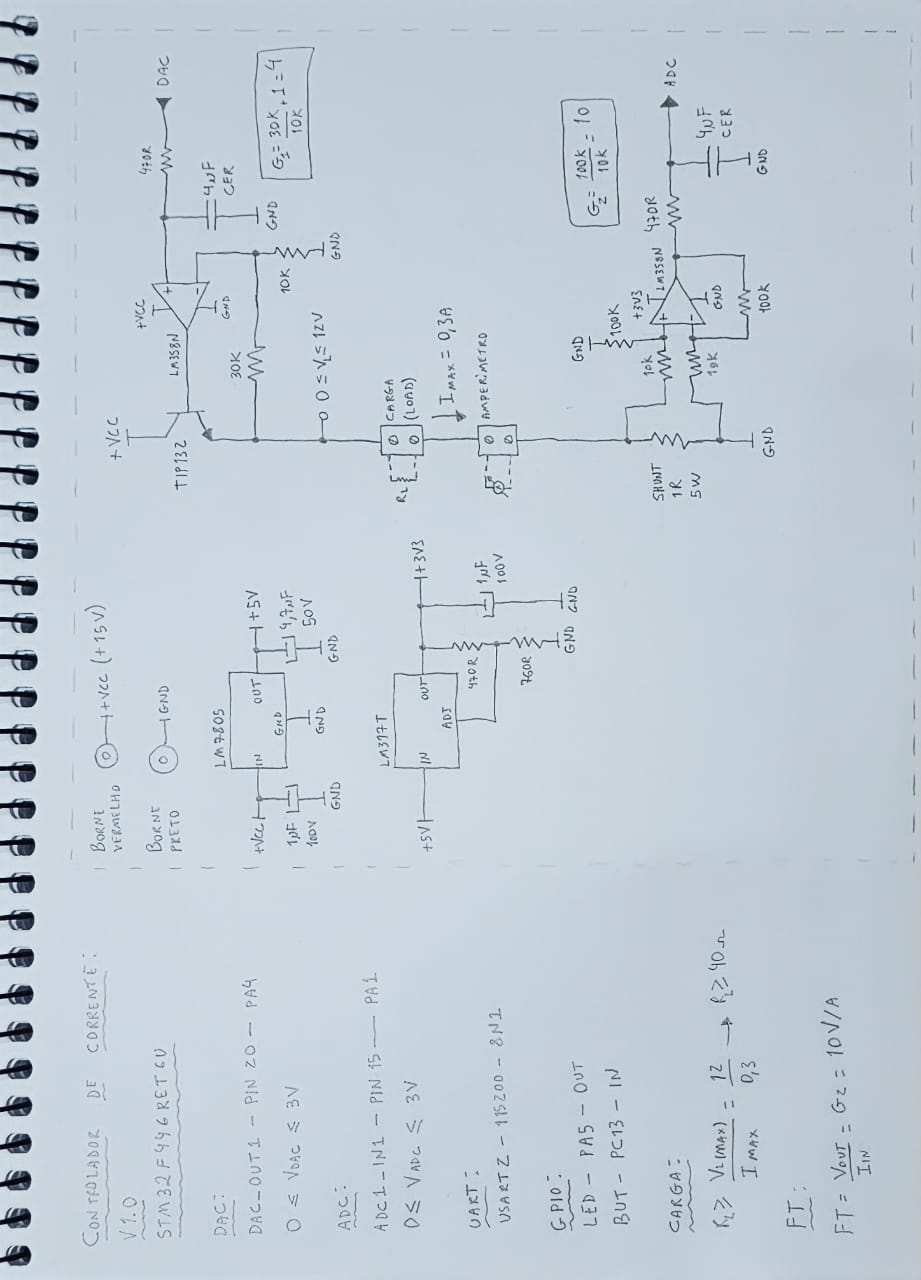 CONTROLADOR DE CORRENTE:
V1.0
STM32F446RET6U
DAC:
DAC_OUT1 - PIN 20 - PA4
0 ≤ VDAC ≤ 3V
ADC:
ADC1_IN1 - PIN 15 — PA1
0 ≤ VADC ≤ 3V
UART:
USART2 - 115200 - 8N1
GPIO:
LED - PA5 - OUT
BUT - PC13 - IN
CARGA:
RL ≥ VL(MAX) / IMAX = 12 / 0,3 → RL ≥ 40Ω
FT:
FT = VOUT / IIN = G2 = 10V/A
BORNE
VERMELHO
+VCC (+15V)
BORNE
PRETO
GND
LM7805
+VCC
IN
OUT
GND
+5V
1µF
100V
GND
GND
4,7µF
50V
GND
LM317T
+5V
IN
OUT
ADJ
+3V3
470R
1µF
100V
760R
GND
GND
+VCC
TIP132
LM358N
+VCC
+
-
GND
470R
DAC
4µF
CER
GND
30K
10K
GND
G1 = 30K / 10K + 1 = 4
0 ≤ VL ≤ 12V
RL
CARGA
(LOAD)
IMAX = 0,3A
A
AMPERÍMETRO
GND
100K
G2 = 100K / 10K = 10
SHUNT
1R
5W
10K
10K
+3V3
LM358N
+
-
GND
100K
470R
ADC
4µF
CER
GND
GND